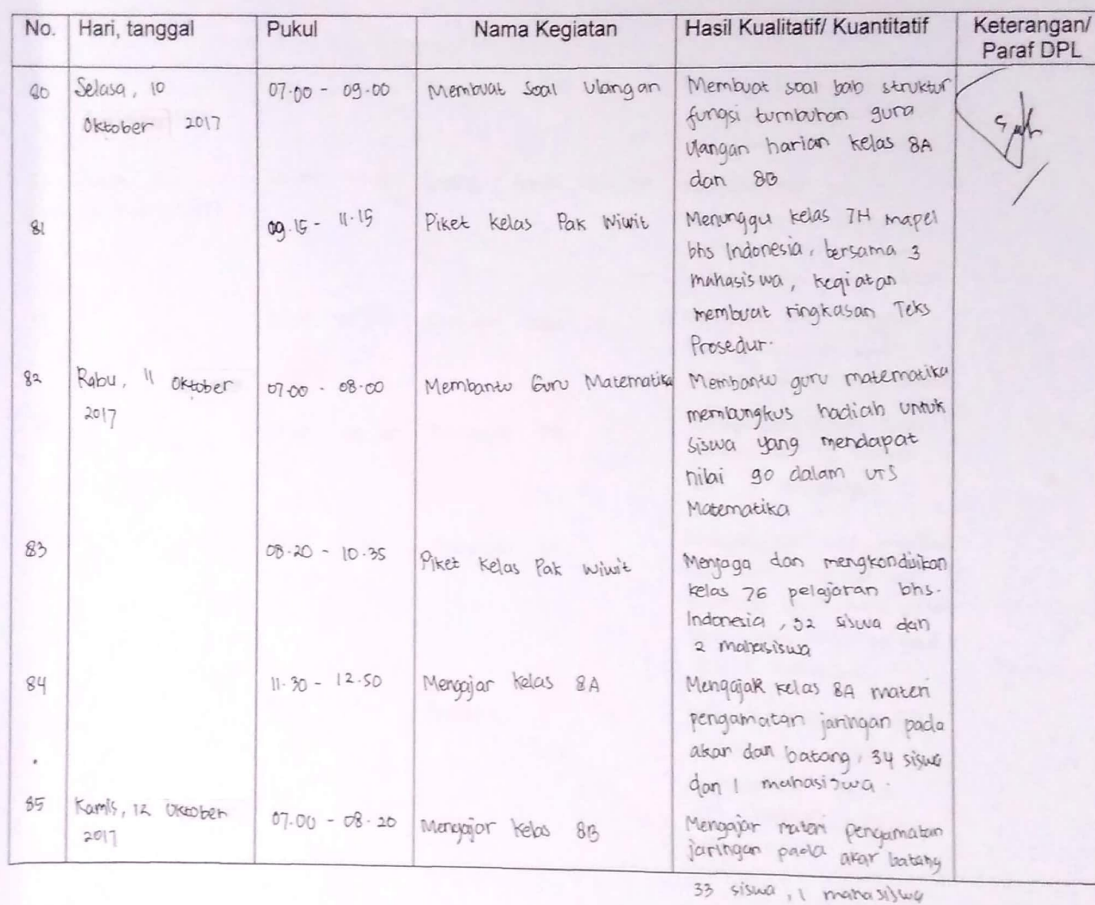 No. Hari, tanggal Pukul Nama Kegiatan Hasil Kualitatif/ Kuantitatif Keterangan/
Paraf DPL
80 Selasa, 10 07.00 - 09.00 Membuat Soal Ulangan Membuat soal bab struktur
Oktober 2017 fungsi tumbuhan guna
Ulangan harian kelas 8A
dan 8B
81 09.15 - 11.15 Piket Kelas Pak Wiwit Menunggu kelas 7H mapel
bhs Indonesia, bersama 3
mahasiswa, kegiatan
membuat ringkasan Teks
Prosedur.
82 Rabu, 11 Oktober 07.00 - 08.00 Membantu Guru Matematika Membantu guru matematika
2017 membungkus hadiah untuk
siswa yang mendapat
nilai 90 dalam UTS
Matematika
83 08.20 - 10.35 Piket Kelas Pak Wiwit Menjaga dan mengkondisikan
kelas pelajaran bhs.
Indonesia, 32 siswa dan
2 mahasiswa
84 11.30 - 12.50 Mengajar kelas 8A Mengajar kelas 8A materi
pengamatan jaringan pada
akar dan batang, 34 siswa
dan 1 mahasiswa.
85 Kamis, 12 Oktober 07.00 - 08.20 Mengajar kelas 8B Mengajar materi pengamatan
2017 jaringan pada akar batang
33 siswa, 1 mahasiswa